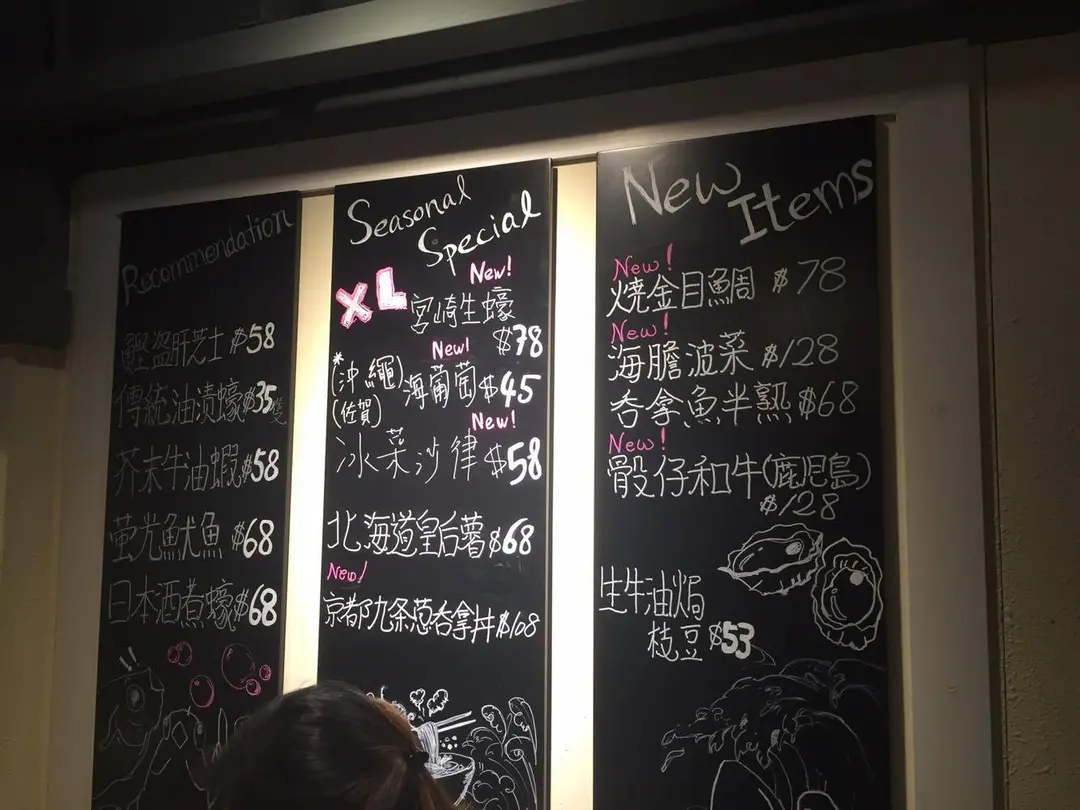 Recommendation
鰹盗肝芝士 $58
傳統油漬蠔$35
芥末牛油蝦$58
螢光魷魚 $68
日本酒煮蠔$68
Seasonal
Special
New!
XL 宮崎生蠔
$78
New!
*(沖繩)海葡萄 $45
(佐賀)
New!
冰菜沙律 $58
北海道皇后薯 $68
New!
京都九条葱吞拿丼 $108
New
Items
New!
燒金目鯛 $78
New!
海膽波菜 $128
吞拿魚半熟 $68
New!
骰仔和牛(鹿児島)
$128
生牛油焗
枝豆 $53